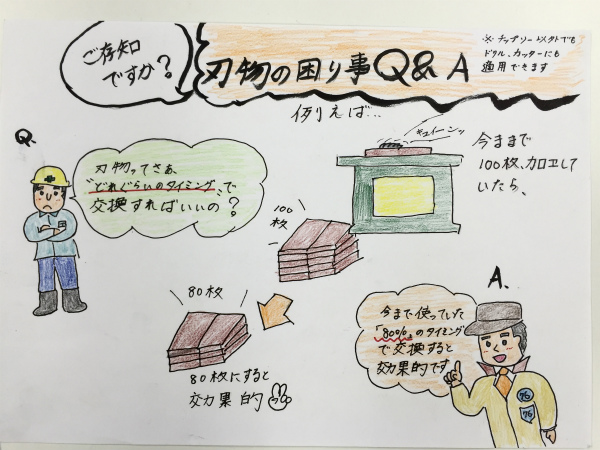 ご存知
ですか?
刃物の困り事Q&A
※チップソー以外でも
ドリル、カッターにも
適用できます
例えば...
Q.
刃物ってさぁ、
"どれぐらいのタイミング"で
交換すればいいの?
キュイーンッ
今まで
100枚、加工して
いたら、
100
枚
80枚
80枚にすると
効果的
A.
今まで使っていた
「80%」のタイミング
で交換すると
効果的です
76
76